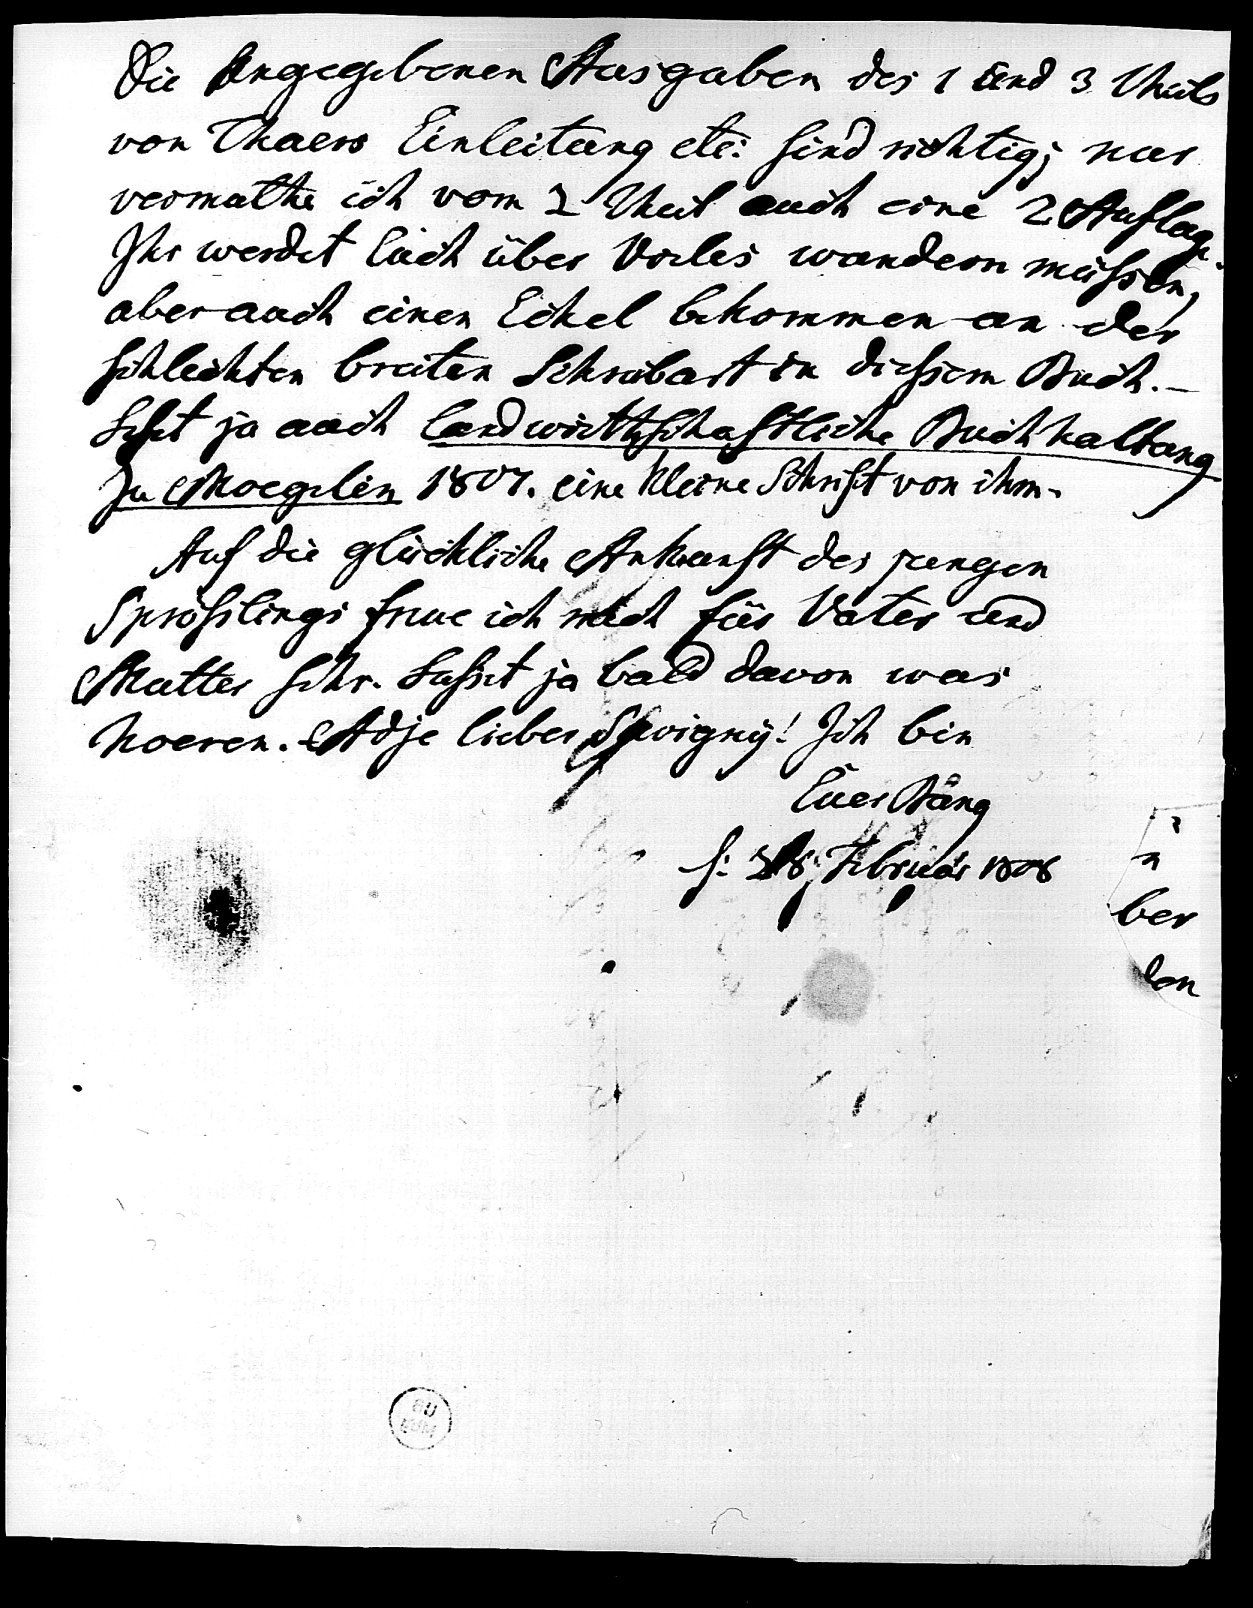 Die angegebenen Ausgaben des 1 und 3 Theils
von Thaers Einleitung etc: sind richtig; nur
vermuthe ich vom 2 Theil auch eine 2 Auflage.
Ihr werdet Euch über Vieles wundern müssen,
aber auch einen Eckel bekommen an der
schlechten breiten Schreibart in diessem Buch. –
Seht ja auch landwirthschaftliche Buchhaltung
zu Moegelin 1807. eine kleine Schrift von ihm.
Auf die glückliche Ankunft des jungen
Sprösslings freue ich mich für Vater und
Mutter sehr. Lasset ja bald davon was
hoeren. Adje lieber Savigny! Ich bin
Euer Bäng
Februar 1808
n
ber